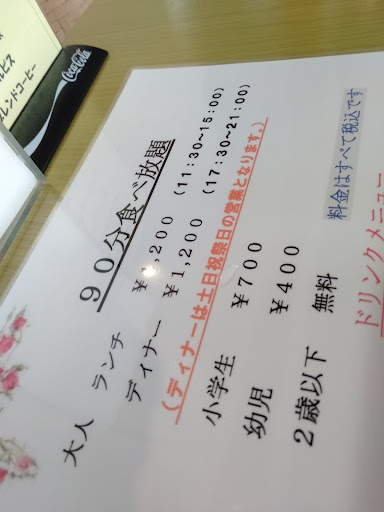 90分食べ放題
大人 ランチ ¥1,200 (11:30~15:00)
ディナー ¥1,200 (17:30~21:00)
(ディナーは土日祝祭日の営業となります。)
小学生 ¥700
幼児 ¥400
2歳以下 無料
料金はすべて税込です
ドリンクメニュー
Coca-Cola
レンドコーヒー